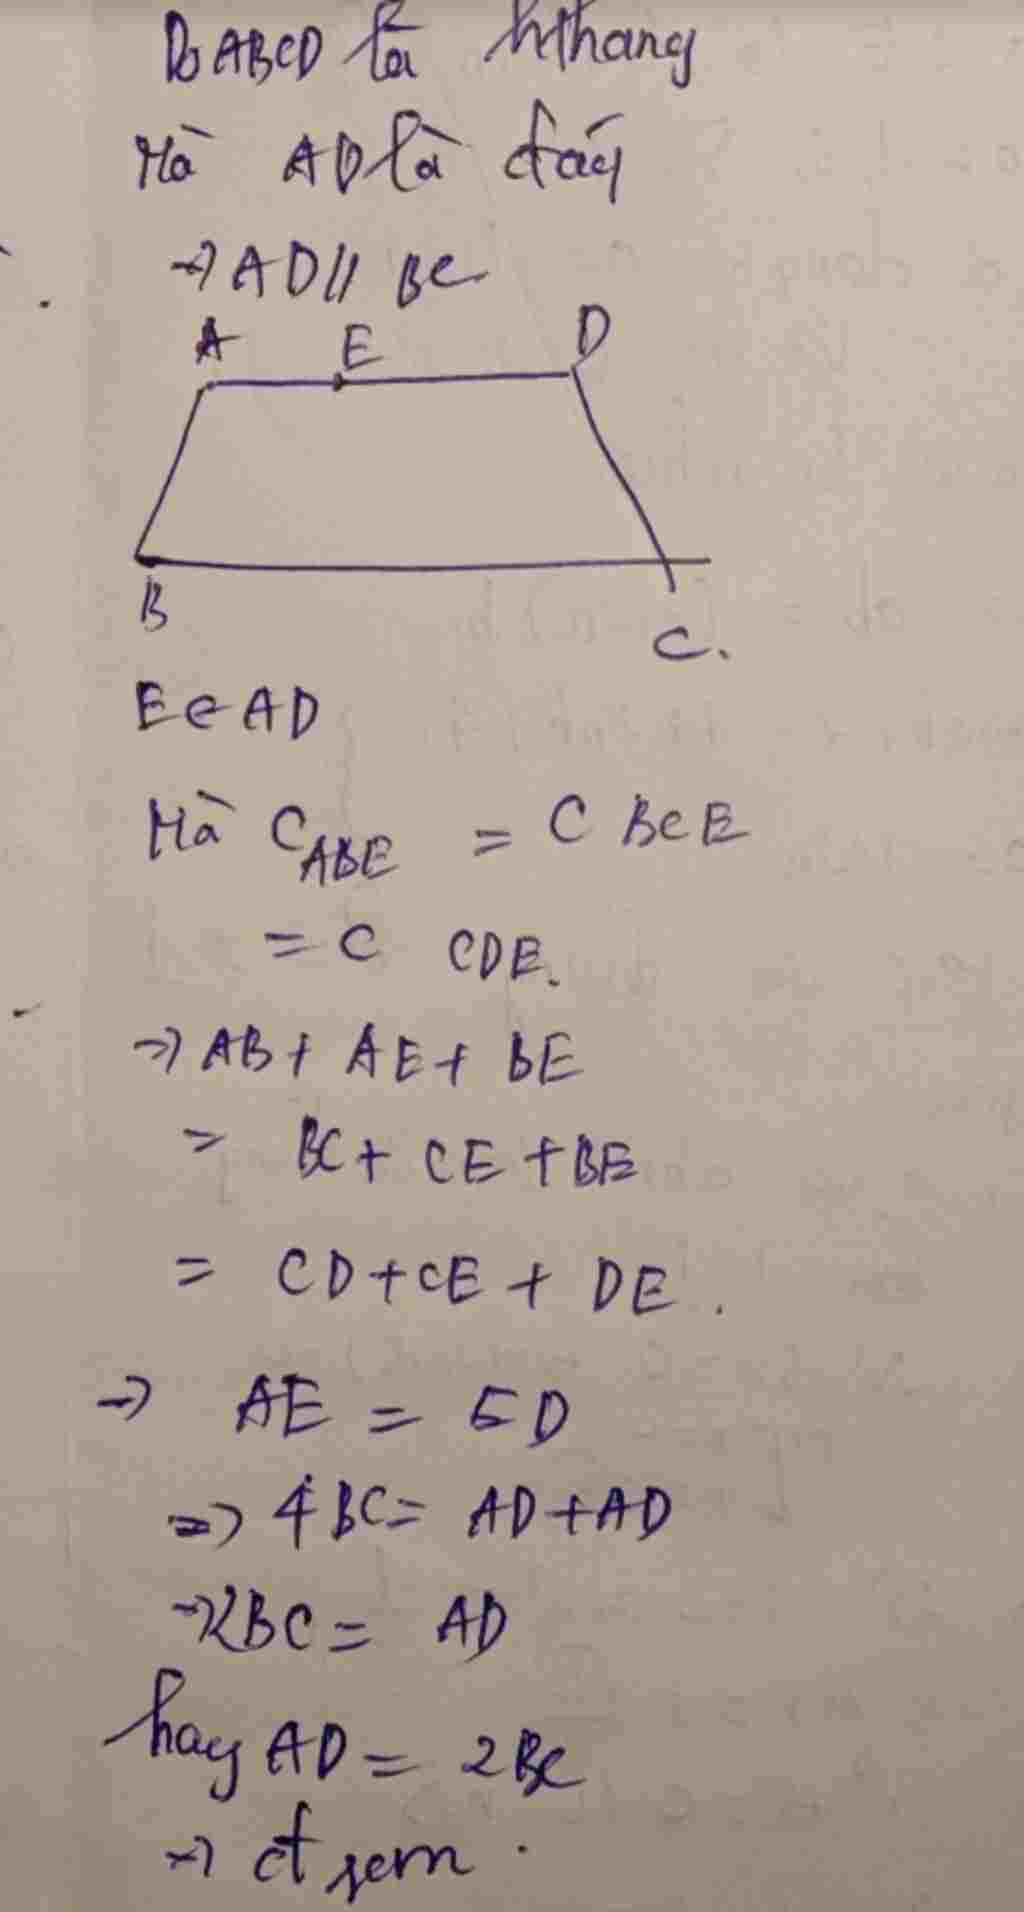 Do ABCD là hthang
Mà AD là đáy
→ AD // BC
A E D
B
C.
E ∈ AD
Mà C_ABE = C BCE
= C CDE.
→ AB + AE + BE
= BC + CE + BE
= CD + CE + DE.
→ AE = ED
=> 4BC = AD + AD
→ 2BC = AD
hay AD = 2BC
→ đfcm.